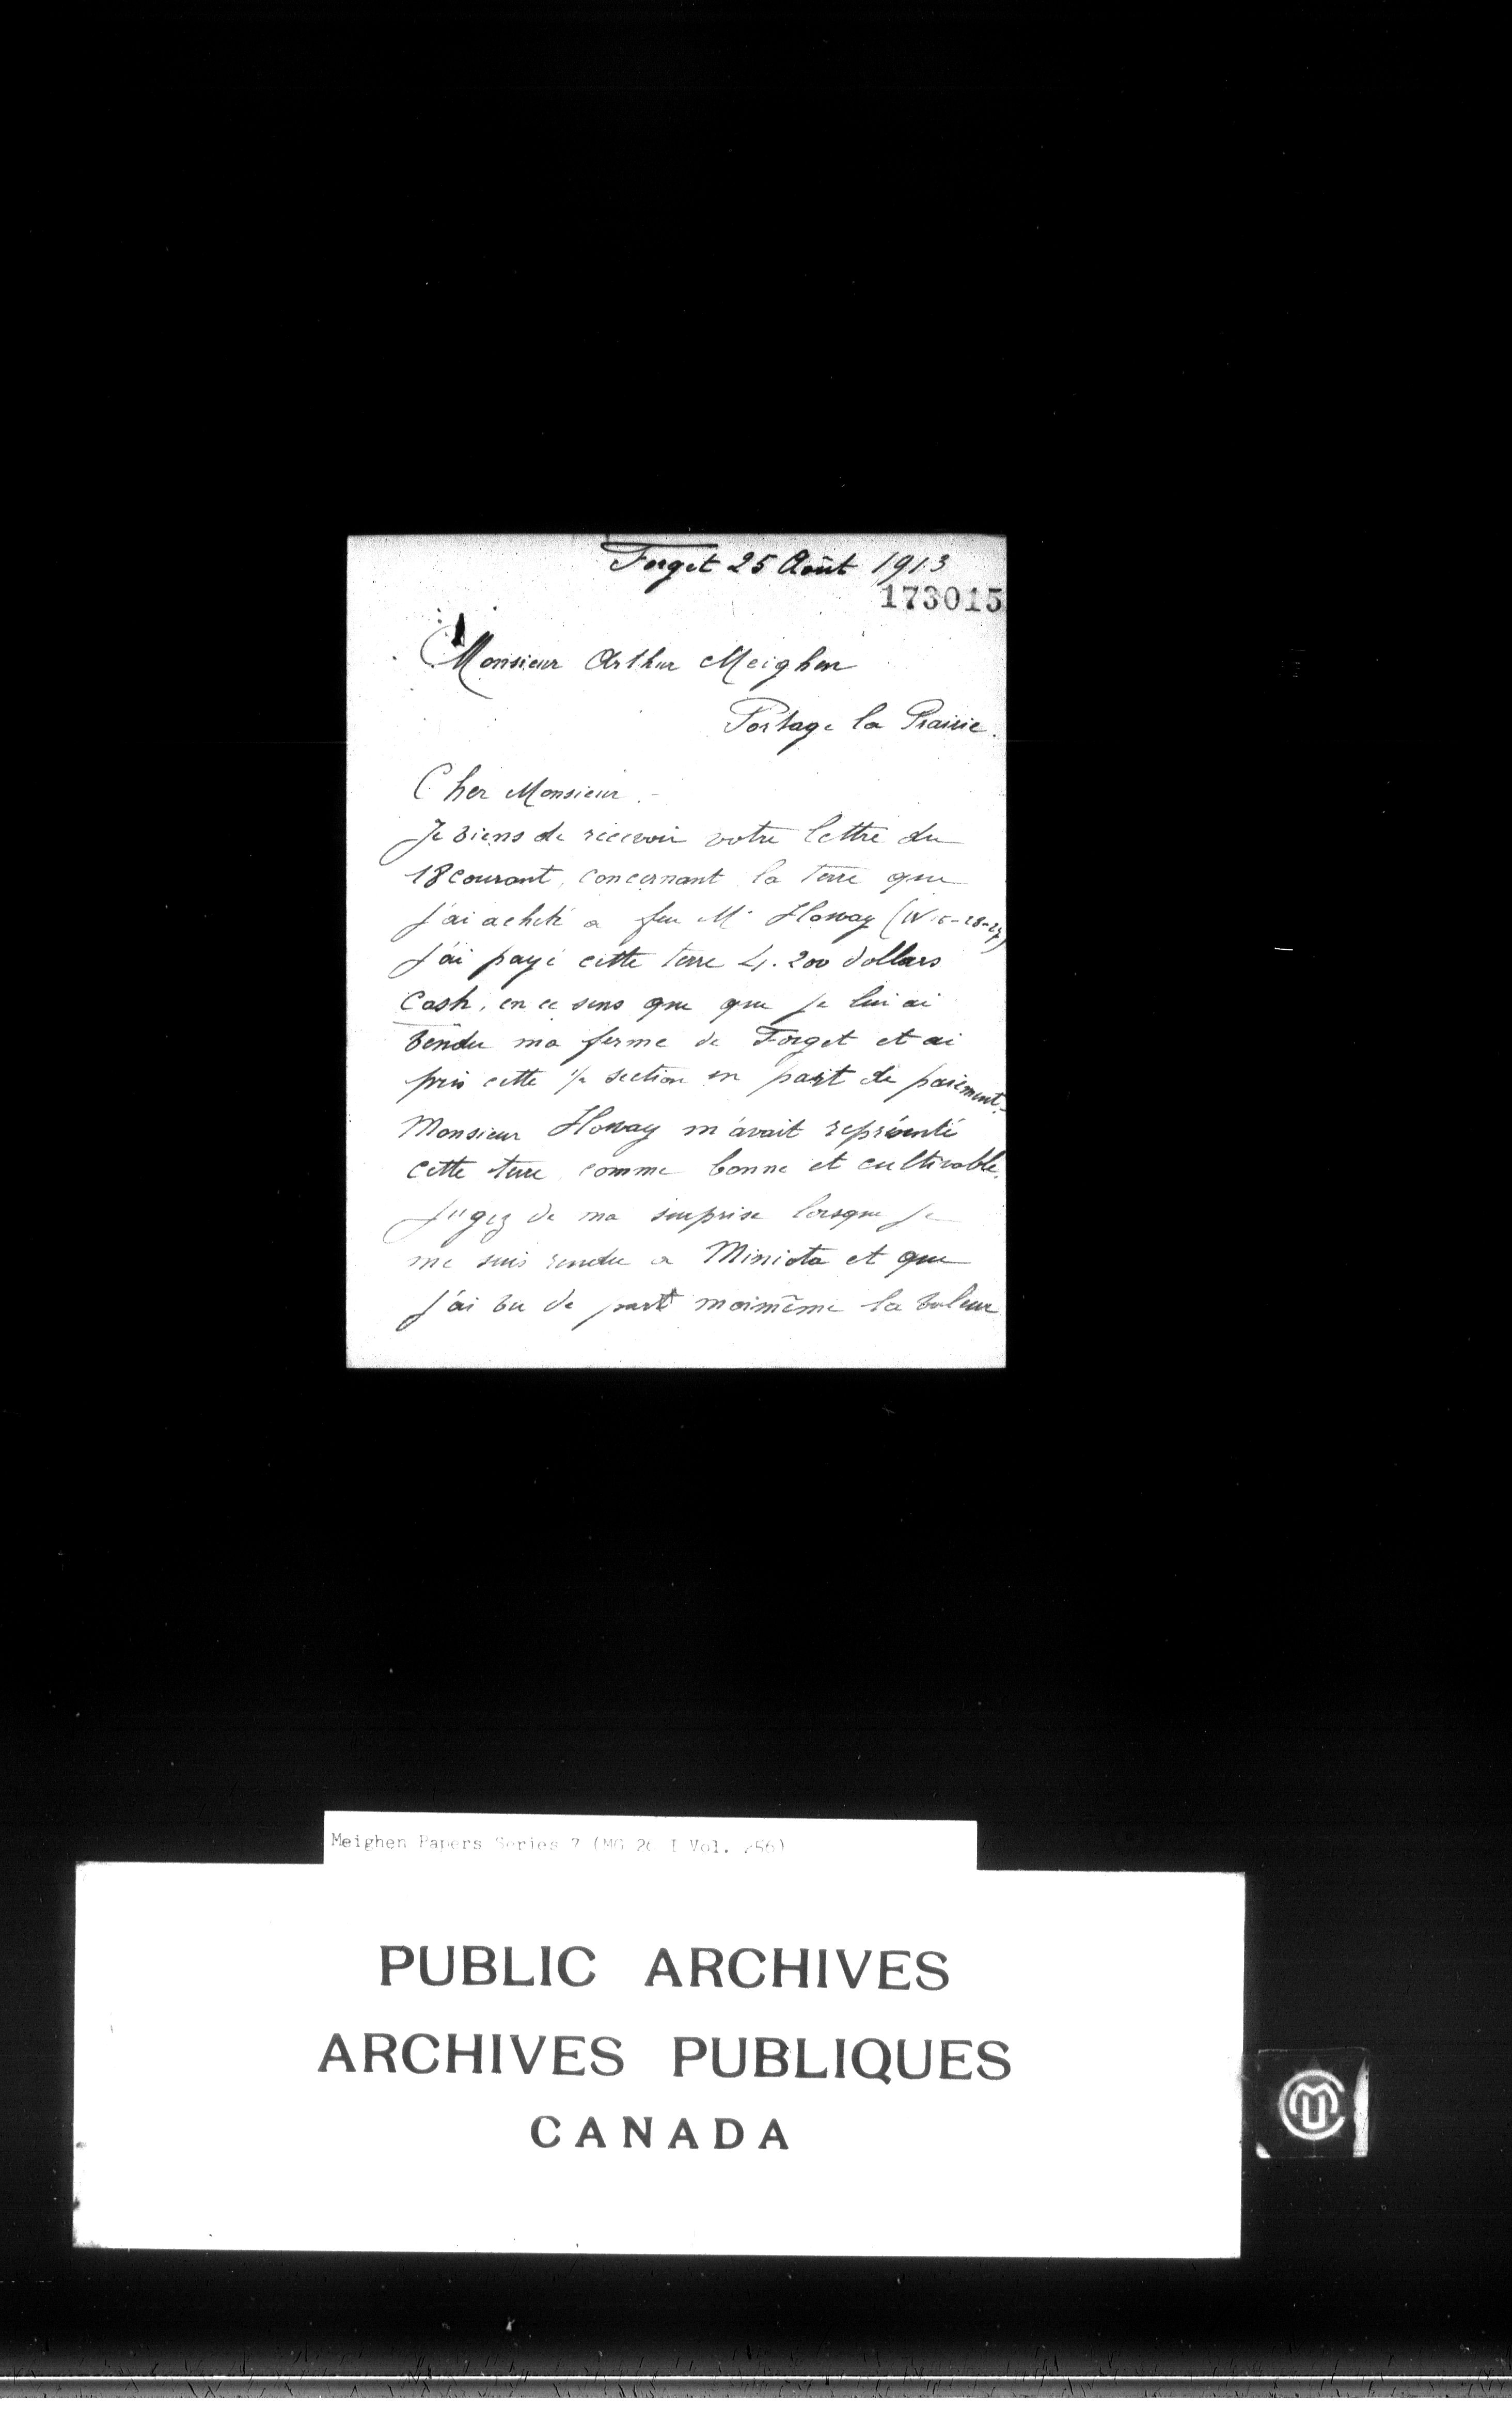 Forget 25 Août 1913
173015
Monsieur Arthur Meighen
Portage la Prairie.
Cher Monsieur.-
Je viens de recevoir votre lettre du
18 courant, concernant la terre que
j'ai acheté a feu Mr Howay
J'ai payé cette terre 4.200 dollars
Cash, en ce sens que que je lui ai
vendu ma ferme de Forget et ai
pris cette section en part de paiement.-
Monsieur Howay m'avait représenté
cette terre comme bonne et cultivable.
Jugez de ma surprise lorsque je
me suis rendu a Miniota et que
j'ai vu de part moimême la valeur
Meighen Papers Series 7 (MG 26 I Vol. 256)
PUBLIC ARCHIVES
ARCHIVES PUBLIQUES
CANADA